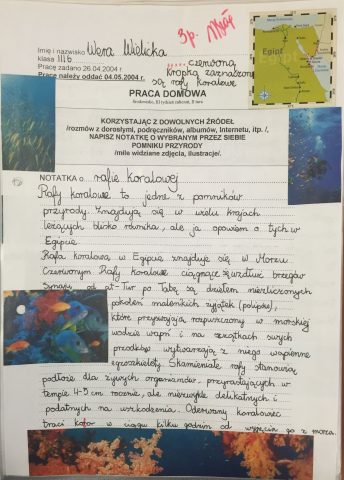 3p.
Imię i nazwisko Wera Wielicka
klasa III b
Pracę zadano 26.04.2004 r.
Pracę należy oddać 04.05.2004 r.
czerwoną
kropką zaznaczone
są rafy koralowe
Egipt
PRACA DOMOWA
KORZYSTAJĄC Z DOWOLNYCH ŹRÓDEŁ
/rozmów z dorosłymi, podręczników, albumów, Internetu, itp. /,
NAPISZ NOTATKĘ O WYBRANYM PRZEZ SIEBIE
POMNIKU PRZYRODY
/mile widziane zdjęcia, ilustracje/.
NOTATKA O rafie koralowej
Rafy koralowe to jedne z pomników
przyrody. Znajdują się w wielu krajach
leżących blisko równika, ale ja opowiem o tych w
Egipcie.
Rafa koralowa w Egipcie znajduje się w Morzu
Czerwonym. Rafy koralowe ciągnące się wzdłuż brzegów
Synaju od at-Tur po Tabę są dziełem niezliczonych
pokoleń maleńkich żyjątek (polipów),
które przyswajają rozpuszczony w morskiej
wodzie wapń i na szczątkach swych
przodków wytwarzają z niego wapienne
egzoszkielety. Skamieniałe rafy stanowią
podłoże dla żywych organizmów, przyrastających w
tempie 4-5 cm rocznie, ale niezwykle delikatnych i
podatnych na uszkodzenia. Oderwany koralowiec
traci kolor w ciągu kilku godzin od wyjęcia go z morza.